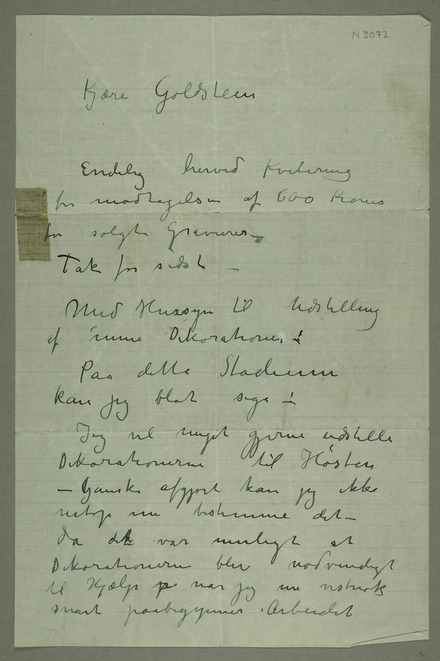 N 3072
Kjære Goldstein
Endelig herved Kvitering
for modtagelsen af 600 Kroner
for solgte Gravurer
Tak for sidst –
Med Hensyn til Udstilling
af mine Dekorationer!
Paa dette Stadium
kan jeg blot sige !
Jeg vil meget gjerne udstille
Dekorationerne til Høsten
– Ganske afgjort kan jeg ikke
netop nu bestemme det –
da det var muligt at
Dekorationerne blir nødvendigt
til Hjælp når jeg nu
snart paabegynner Arbeidet